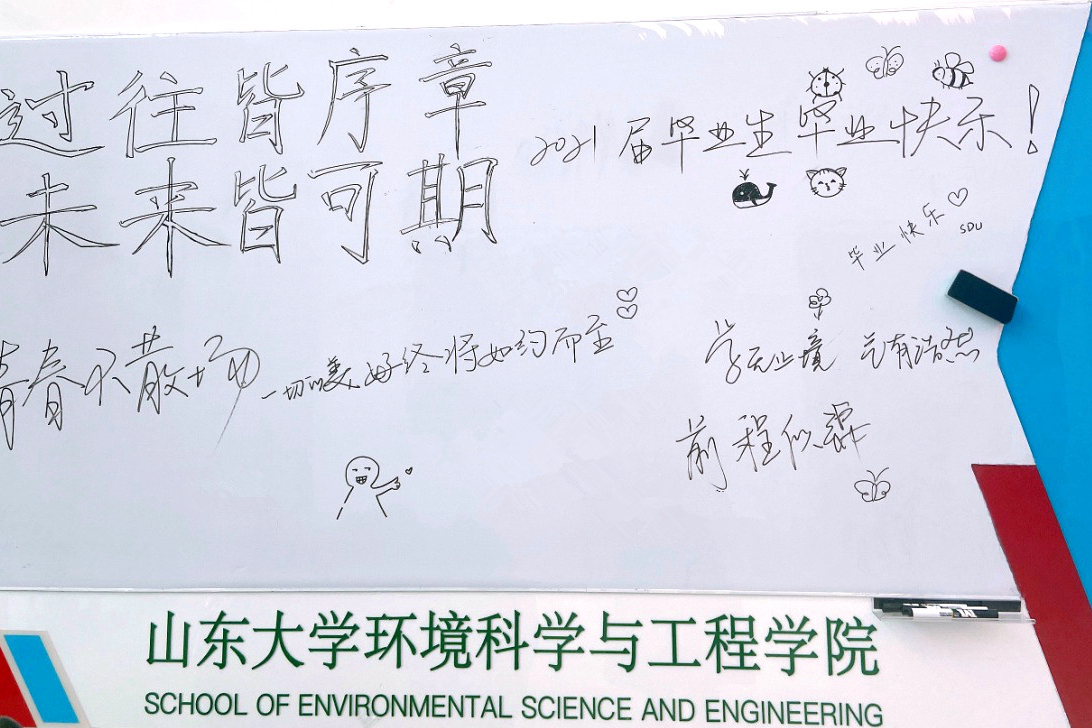 过往皆序章
未来皆可期
2021届毕业生毕业快乐!
毕业快乐
SDU
青春不散场
一切美好终将如约而至
学无止境 气有浩然
前程似
山东大学环境科学与工程学院
SCHOOL OF ENVIRONMENTAL SCIENCE AND ENGINEERING